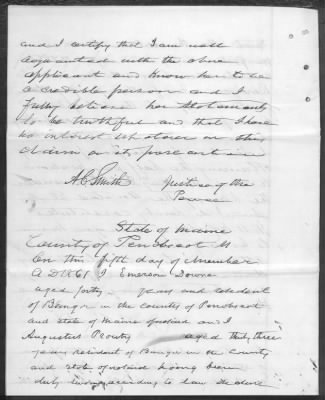 and I certify that I am well
acquainted with the above
applicant and know her to be
a credible person and I
fully believe her Statements
to be truthful and that I have
no interest whatever in this
Claim or its prosecution
A C Smith Justice of the
Peace
State of Maine
County of Penobscot
On this fifth day of
A D 1861 I Emerson
aged forty years and resident
of Bangor in the County of Penobscot
and State of Maine and I
Augustus aged thirty three
years resident of Bangor in the County
and State of having been
duly according to law declare